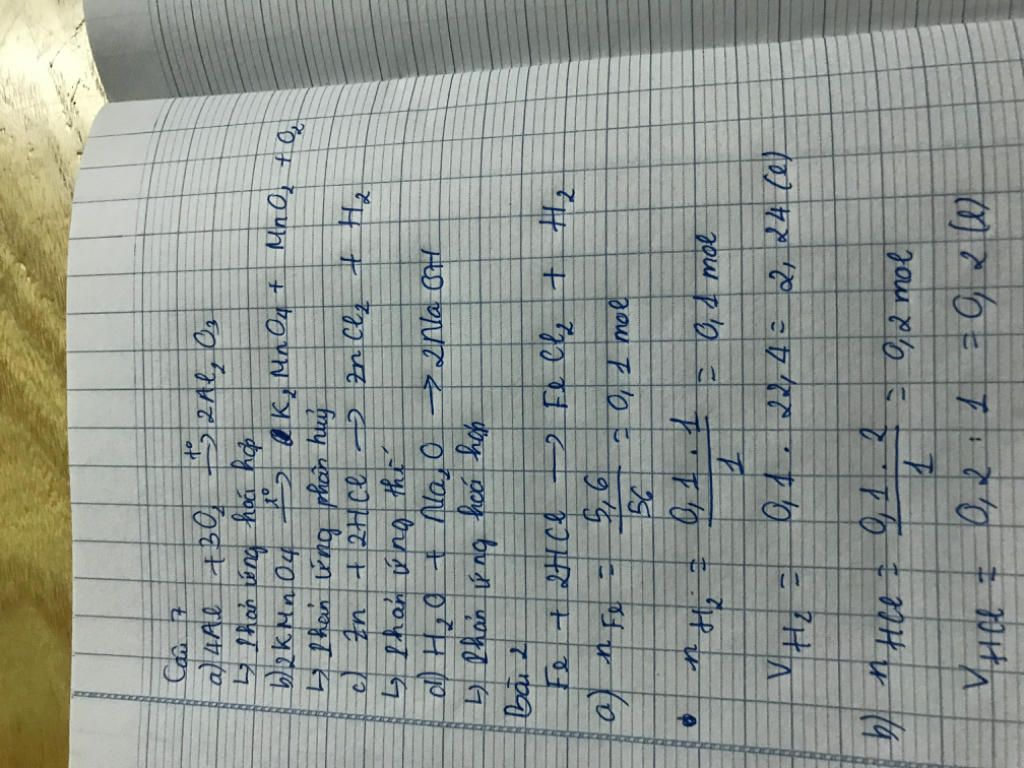 Câu 7
a) 4Al + 3O₂ →t° 2Al₂O₃
↳ Phản ứng hoá hợp
b) 2KMnO₄ →t° K₂MnO₄ + MnO₂ + O₂
↳ Phản ứng phân huỷ
c) Zn + 2HCl → ZnCl₂ + H₂
↳ Phản ứng thế
d) H₂O + Na₂O → 2NaOH
↳ Phản ứng hoá hợp
Bài 2
Fe + 2HCl → FeCl₂ + H₂
a) n Fe = 5,6/56 = 0,1 mol
• n H₂ = 0,1 . 1/1 = 0,1 mol
V H₂ = 0,1 . 22,4 = 2,24 (l)
b) n HCl = 0,1 . 2/1 = 0,2 mol
V HCl = 0,2 : 1 = 0,2 (l)